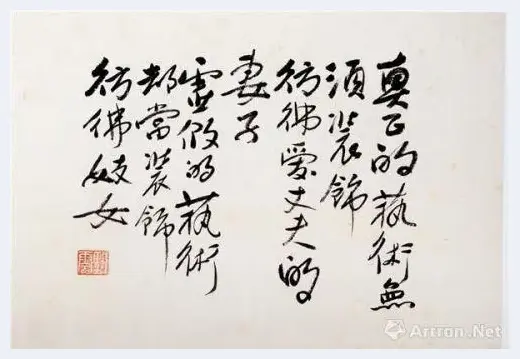 真正的藝術無
須裝飾
彷彿愛丈夫的
妻子
虛假的藝術
都當裝飾
彷彿妓女
Artron.Net